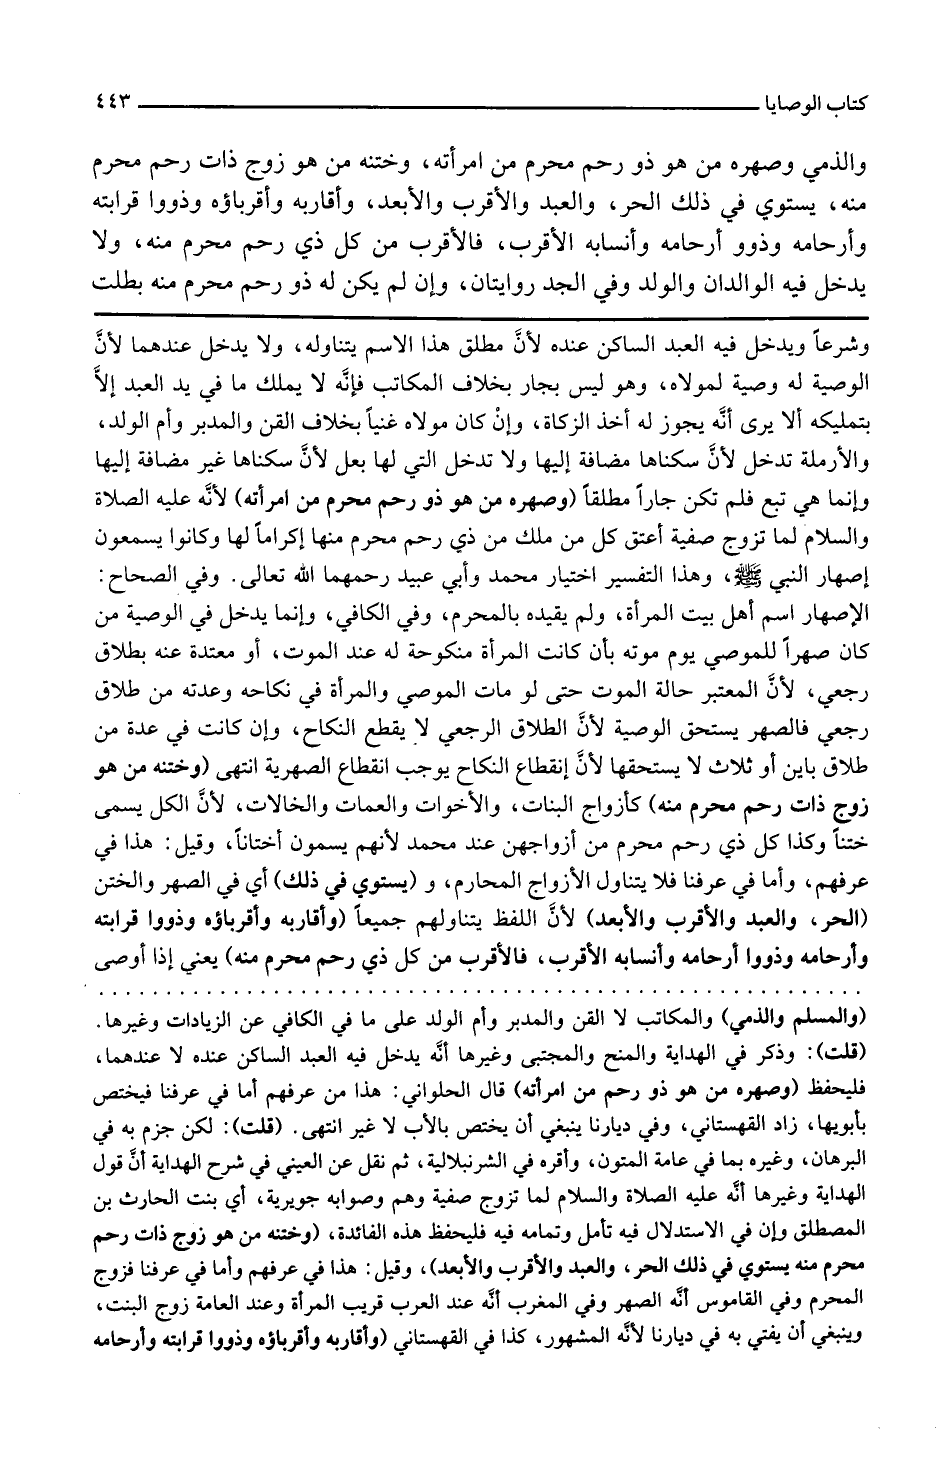 كتاب الوصايا ٤٤٣
والذمي وصهره من هو ذو رحم محرم من امرأته، وختنه من هو زوج ذات رحم محرم
منه، يستوي في ذلك الحر، والعبد والأقرب والأبعد، وأقاربه وأقرباؤه وذووا قرابته
وأرحامه وذوو أرحامه وأنسابه الأقرب، فالأقرب من كل ذي رحم محرم منه، ولا
يدخل فيه الوالدان والولد وفي الجد روايتان، وإن لم يكن له ذو رحم محرم منه بطلت
وشرعاً ويدخل فيه العبد الساكن عنده لأنَّ مطلق هذا الاسم يتناوله، ولا يدخل عندهما لأنَّ
الوصية له وصية لمولاه، وهو ليس بجار بخلاف المكاتب فإنَّه لا يملك ما في يد العبد إلاَّ
بتمليكه ألا يرى أنَّه يجوز له أخذ الزكاة، وإنْ كان مولاه غنياً بخلاف القن والمدبر وأم الولد،
والأرملة تدخل لأنَّ سكناها مضافة إليها ولا تدخل التي لها بعل لأنَّ سكناها غير مضافة إليها
وإنما هي تبع فلم تكن جاراً مطلقاً (وصهره من هو ذو رحم محرم من امرأته) لأنَّه عليه الصلاة
والسلام لما تزوج صفية أعتق كل من ملك من ذي رحم محرم منها إكراماً لها وكانوا يسمعون
إصهار النبي ﷺ، وهذا التفسير اختيار محمد وأبي عبيد رحمهما الله تعالى. وفي الصحاح:
الإصهار اسم أهل بيت المرأة، ولم يقيده بالمحرم، وفي الكافي، وإنما يدخل في الوصية من
كان صهراً للموصي يوم موته بأن كانت المرأة منكوحة له عند الموت، أو معتدة عنه بطلاق
رجعي، لأنَّ المعتبر حالة الموت حتى لو مات الموصي والمرأة في نكاحه وعدته من طلاق
رجعي فالصهر يستحق الوصية لأنَّ الطلاق الرجعي لا يقطع النكاح، وإن كانت في عدة من
طلاق باين أو ثلاث لا يستحقها لأنَّ إنقطاع النكاح يوجب انقطاع الصهرية انتهى (وختنه من هو
زوج ذات رحم محرم منه) كأزواج البنات، والأخوات والعمات والخالات، لأنَّ الكل يسمى
ختناً وكذا كل ذي رحم محرم من أزواجهن عند محمد لأنهم يسمون أختاناً، وقيل: هذا في
عرفهم، وأما في عرفنا فلا يتناول الأزواج المحارم، و (يستوي في ذلك) أي في الصهر والختن
(الحر، والعبد والأقرب والأبعد) لأنَّ اللفظ يتناولهم جميعاً (وأقاربه وأقرباؤه وذووا قرابته
وأرحامه وذووا أرحامه وأنسابه الأقرب، فالأقرب من كل ذي رحم محرم منه) يعني إذا أوصى
(والمسلم والذمي) والمكاتب لا القن والمدبر وأم الولد على ما في الكافي عن الزيادات وغيرها.
(قلت): وذكر في الهداية والمنح والمجتبى وغيرها أنَّه يدخل فيه العبد الساكن عنده لا عندهما،
فليحفظ (وصهره من هو ذو رحم من امرأته) قال الحلواني: هذا من عرفهم أما في عرفنا فيختص
بأبويها، زاد القهستاني، وفي ديارنا ينبغي أن يختص بالأب لا غير انتهى. (قلت): لكن جزم به في
البرهان، وغيره بما في عامة المتون، وأقره في الشرنبلالية، ثم نقل عن العيني في شرح الهداية أنَّ قول
الهداية وغيرها أنَّه عليه الصلاة والسلام لما تزوج صفية وهم وصوابه جويرية، أي بنت الحارث بن
المصطلق وإن في الاستدلال فيه تأمل وتمامه فيه فليحفظ هذه الفائدة، (وختنه من هو زوج ذات رحم
محرم منه يستوي في ذلك الحر، والعبد والأقرب والأبعد)، وقيل: هذا في عرفهم وأما في عرفنا فزوج
المحرم وفي القاموس أنَّه الصهر وفي المغرب أنَّه عند العرب قريب المرأة وعند العامة زوج البنت،
وينبغي أن يفتي به في ديارنا لأنَّه المشهور، كذا في القهستاني (وأقاربه وأقرباؤه وذووا قرابته وأرحامه